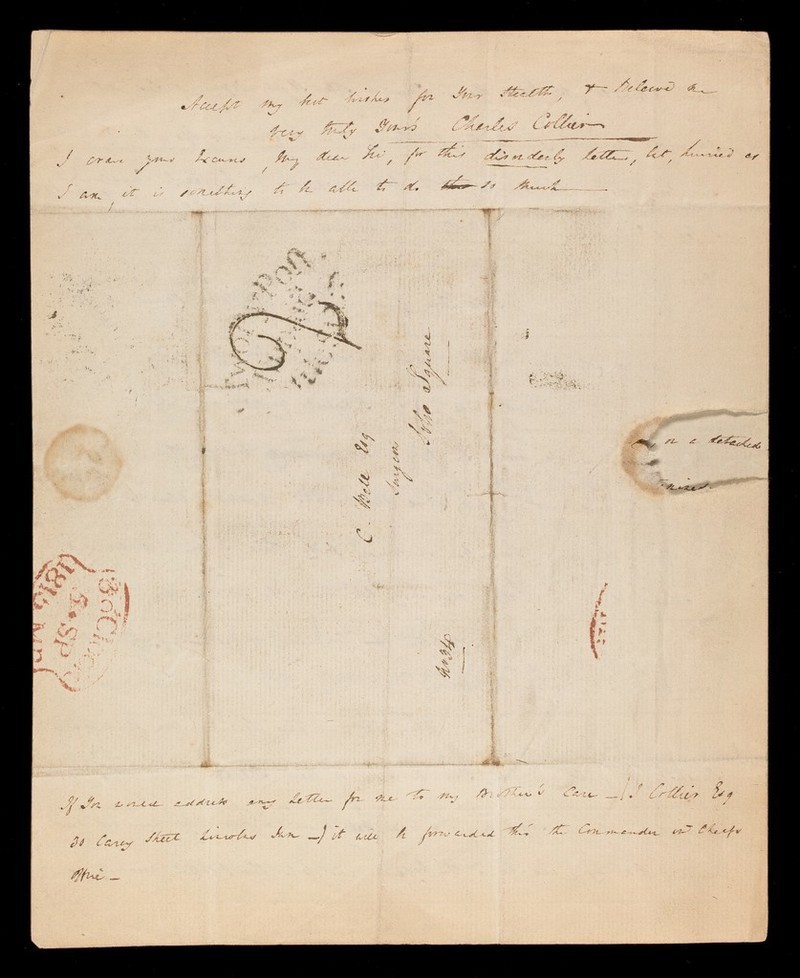 Accept my best wishes for Your Health, & Believe me
very truly Yours Charles Collier
I crave your Excuse, My dear Sir, for this disorderly letter, but, hurried as
I am, it is something to be able to do so much
C. Bell Esq
Surgeon
Soho Square
on a detached
8 o'Clock
5 SP
1815
If You would address any Letter for me to my Brother's Care — (J Collier Esq
30 Carey Street Lincolns Inn —) it will be forwarded thro' the Commander in Chiefs
Office —